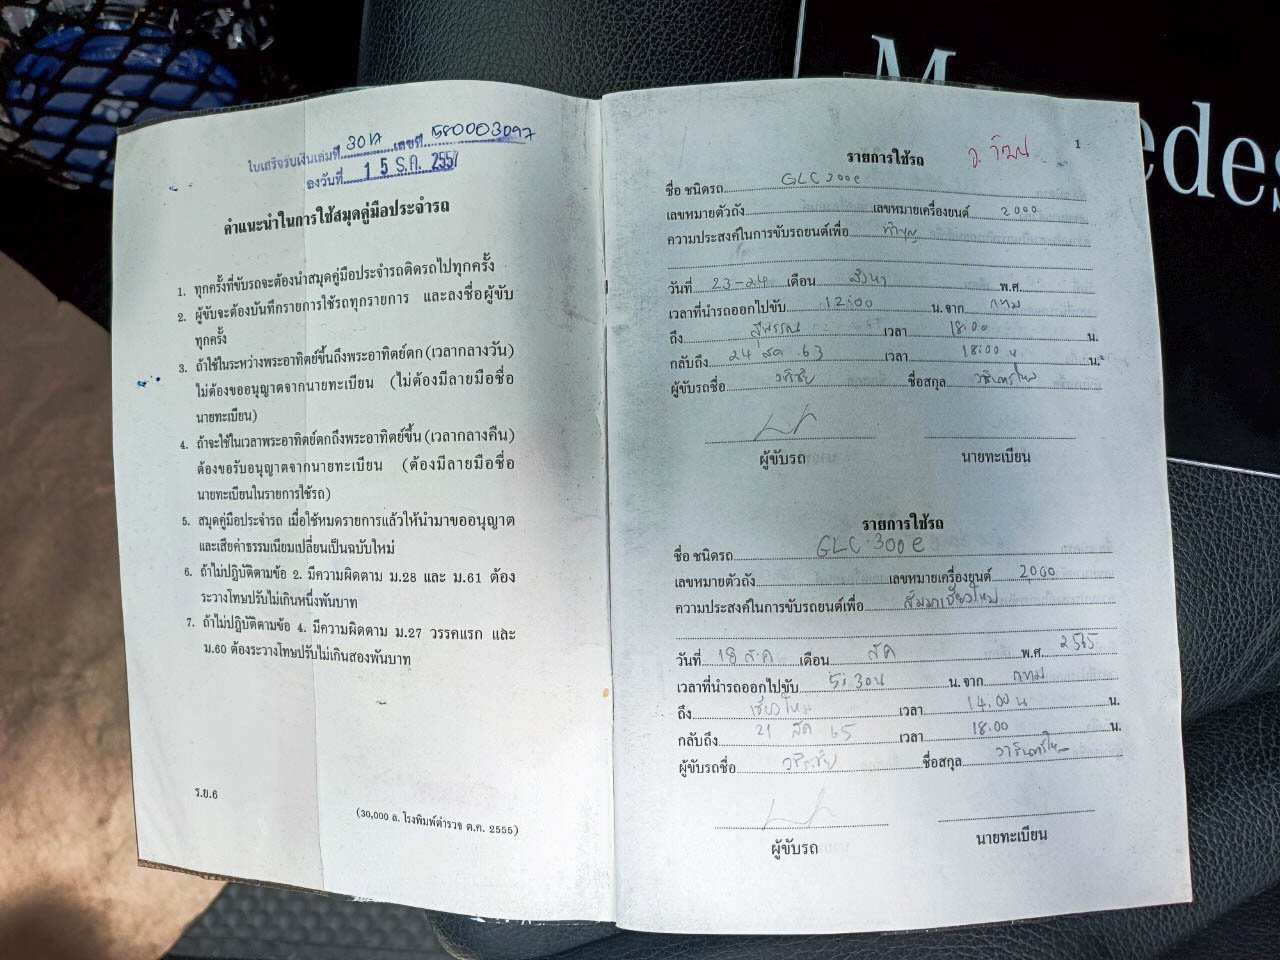 ใบเสร็จรับเงินเล่มที่ 3017 เลขที่ 580003097
ลงวันที่ 15 ธ.ค. 2557
คำแนะนำในการใช้สมุดคู่มือประจำรถ
1. ทุกครั้งที่ขับรถจะต้องนำสมุดคู่มือประจำรถติดรถไปทุกครั้ง
2. ผู้ขับจะต้องบันทึกรายการใช้รถทุกรายการ และลงชื่อผู้ขับ
ทุกครั้ง
3. ถ้าใช้ในระหว่างพระอาทิตย์ขึ้นถึงพระอาทิตย์ตก (เวลากลางวัน)
ไม่ต้องขออนุญาตจากนายทะเบียน (ไม่ต้องมีลายมือชื่อ
นายทะเบียน)
4. ถ้าจะใช้ในเวลาพระอาทิตย์ตกถึงพระอาทิตย์ขึ้น (เวลากลางคืน)
ต้องขอรับอนุญาตจากนายทะเบียน (ต้องมีลายมือชื่อ
นายทะเบียนในรายการใช้รถ)
5. สมุดคู่มือประจำรถ เมื่อใช้หมดรายการแล้วให้นำมาขออนุญาต
และเสียค่าธรรมเนียมเปลี่ยนเป็นฉบับใหม่
6. ถ้าไม่ปฎิบัติตามข้อ 2. มีความผิดตาม ม.28 และ ม.61 ต้อง
ระวางโทษปรับไม่เกินหนึ่งพันบาท
7. ถ้าไม่ปฎิบัติตามข้อ 4. มีความผิดตาม ม.27 วรรคแรก และ
ม.60 ต้องระวางโทษปรับไม่เกินสองพันบาท
ร.ย.6
(30,000 ล. โรงพิมพ์ตำรวจ ต.ค. 2555)
1
รายการใช้รถ
ชื่อ ชนิดรถ GLC 300e
เลขหมายตัวถัง เลขหมายเครื่องยนต์ 2000
ความประสงค์ในการขับรถยนต์เพื่อ ทำบุญ
วันที่ 23-24 เดือน พ.ศ.
เวลาที่นำรถออกไปขับ 12:00 น. จาก กทม
ถึง สุพรรณ เวลา 18:00 น.
กลับถึง 24 สค 63 เวลา 18:00 น น.
ผู้ขับรถชื่อ ชื่อสกุล
ผู้ขับรถ นายทะเบียน
รายการใช้รถ
ชื่อ ชนิดรถ GLC 300e
เลขหมายตัวถัง เลขหมายเครื่องยนต์ 2000
ความประสงค์ในการขับรถยนต์เพื่อ สัมมาเชียงใหม่
วันที่ 18 ส.ค เดือน สค พ.ศ. 2565
เวลาที่นำรถออกไปขับ 5:30น น. จาก กทม
ถึง เชียงใหม่ เวลา 14.00 น น.
กลับถึง 21 สค 65 เวลา 18.00 น.
ผู้ขับรถชื่อ ชื่อสกุล
ผู้ขับรถ นายทะเบียน